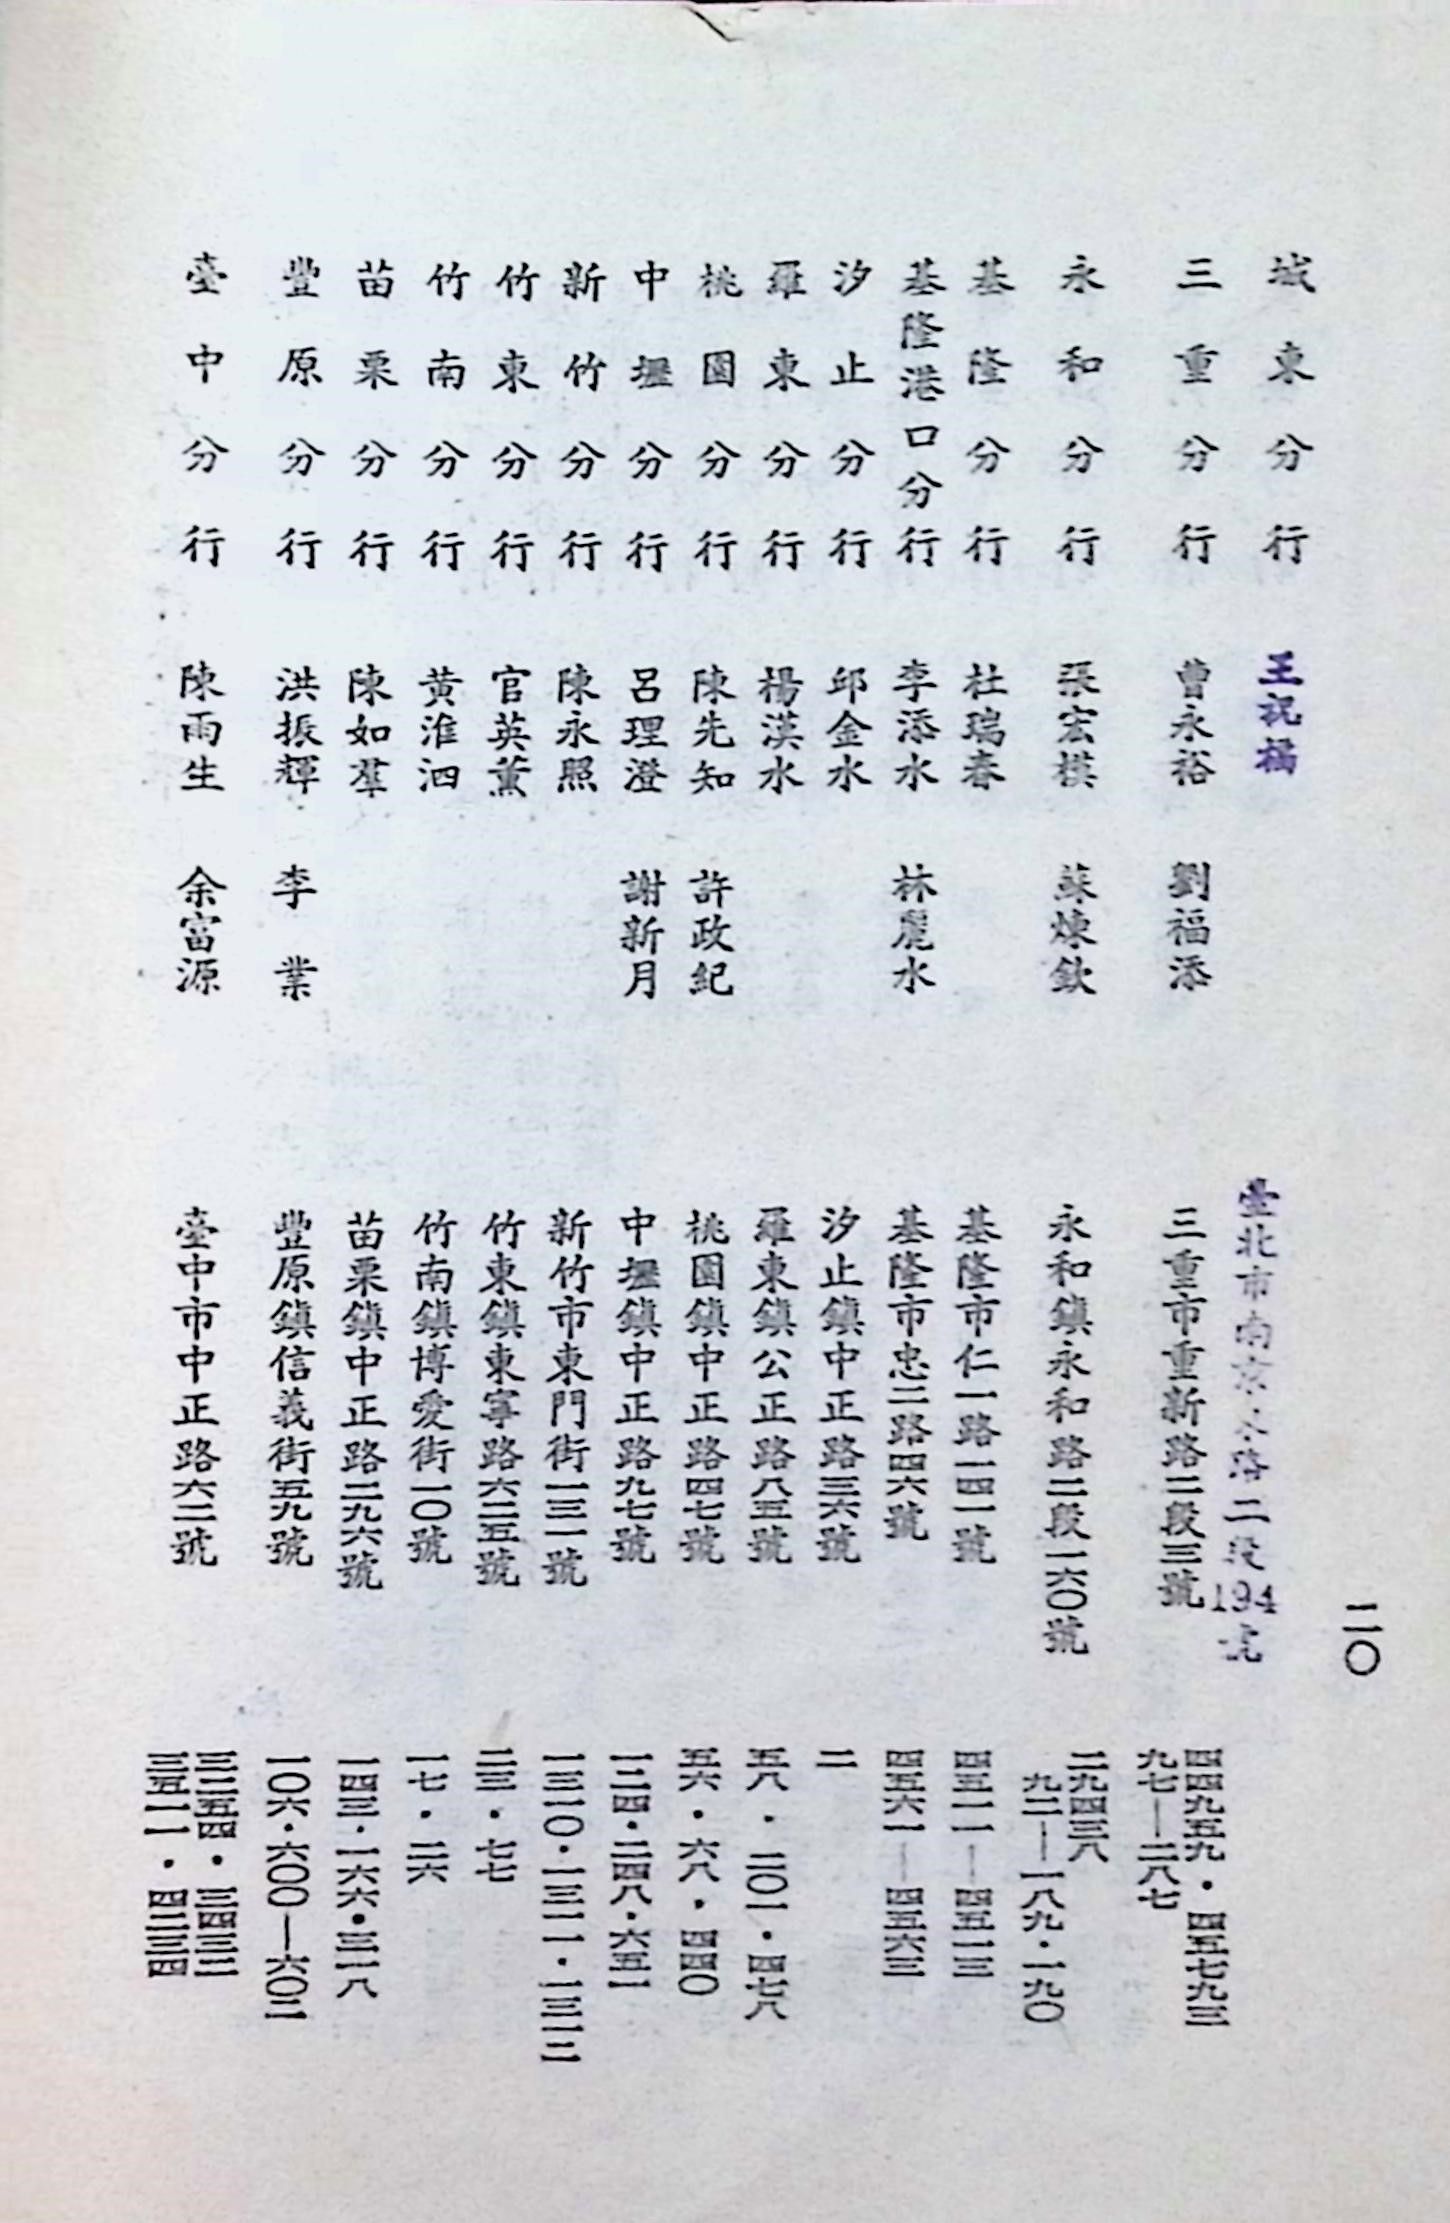 二〇
城東分行 王祝福 臺北市南京東路二段194號
三重分行 曹永裕 劉福添 三重市重新路二段三號 四四九五九・四五七九三
九七—二八七
永和分行 張宏模 蘇煉欽 永和鎮永和路二段一六〇號 二九四三八
九二—一八九・一九〇
基隆分行 杜瑞春 基隆市仁一路一四一號 四五一一—四五一三
基隆港口分行 李添水 林麗水 基隆市忠二路四六號 四五六一—四五六三
汐止分行 邱金水 汐止鎮中正路三六號 二
羅東分行 楊漢水 羅東鎮公正路八五號 五八・二〇一・四七八
桃園分行 陳先知 許政紀 桃園鎮中正路四七號 五六・六八・四四〇
中壢分行 呂理澄 謝新月 中壢鎮中正路九七號 一二四・二四八・六五一
新竹分行 陳永照 新竹市東門街一三一號 一三一〇・一三一一・一三一二
竹東分行 官英薰 竹東鎮東寧路六二五號 二三・七七
竹南分行 黃淮泗 竹南鎮博愛街一〇號 一七・二六
苗栗分行 陳如羣 苗栗鎮中正路二九六號 一四三・一六六・三一八
豐原分行 洪振輝 李業 豐原鎮信義街五九號 一〇六・六〇〇—六〇二
臺中分行 陳雨生 余富源 臺中市中正路六二號 三二五四・三四三二
三五一一・四二三四